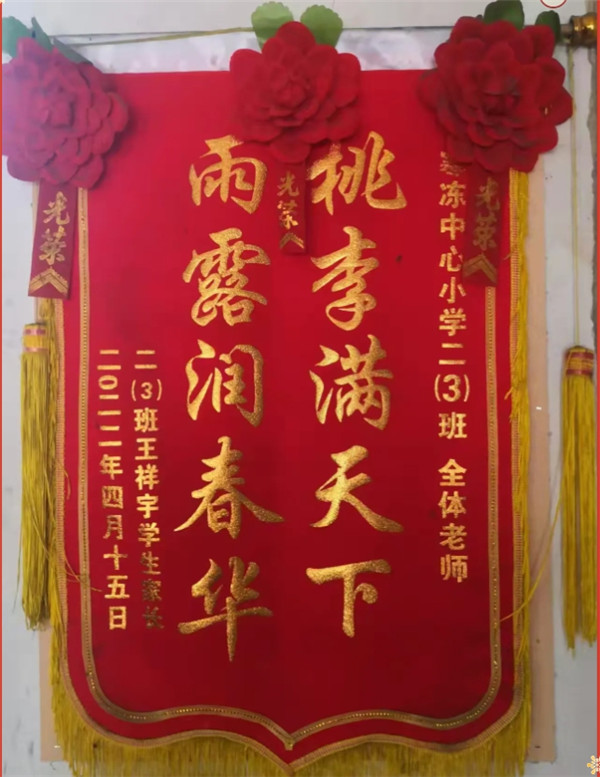 冻中心小学二(3)班 全体老师
桃李满天下
雨露润春华
二(3)班王祥宇学生家长
二〇二二年四月十五日
光荣
光荣
光荣